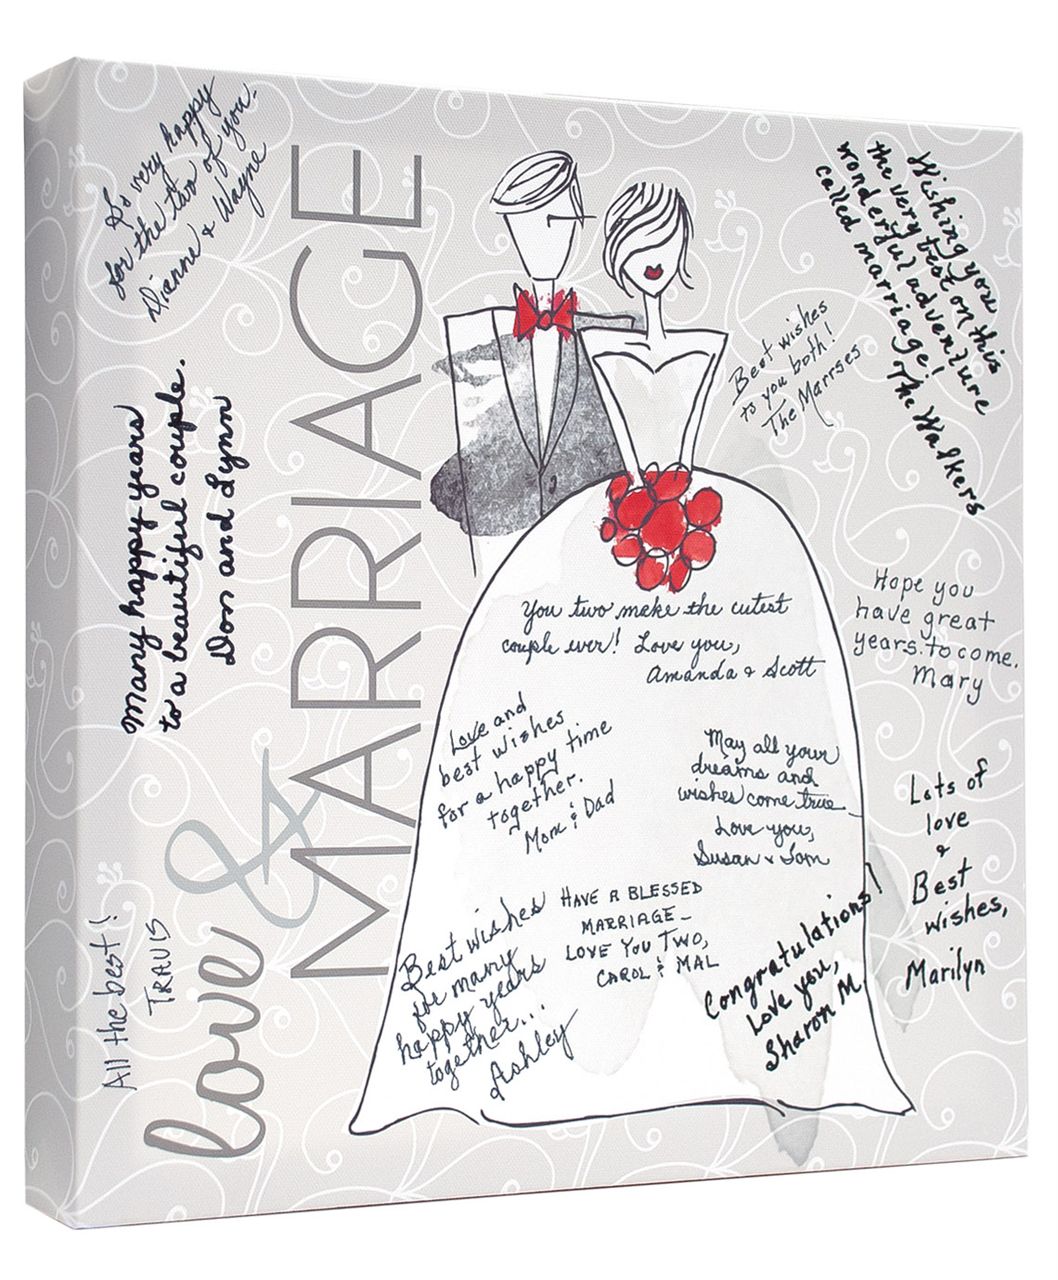 So very happy
for the two of you.
Dianne & Wayne
Many happy years
to a beautiful couple.
Don and Lynn
All the best!
TRAVIS
love &
MARRIAGE
Wishing you
the very best on this
wonderful adventure
called marriage!
The Walkers
Best wishes
to you both!
The Marrses
Hope you
have great
years to come.
Mary
You two make the cutest
couple ever! Love you,
Amanda & Scott
Love and
best wishes
for a happy time
together.
Mom & Dad
May all your
dreams and
wishes come true
Love you,
Susan & Tom
Lots of
love
&
Best
wishes,
Marilyn
Best wishes
for many
happy years
together...
Ashley
HAVE A BLESSED
MARRIAGE—
LOVE YOU TWO,
CAROL & MAL
Congratulations!
Love you,
Sharon M.